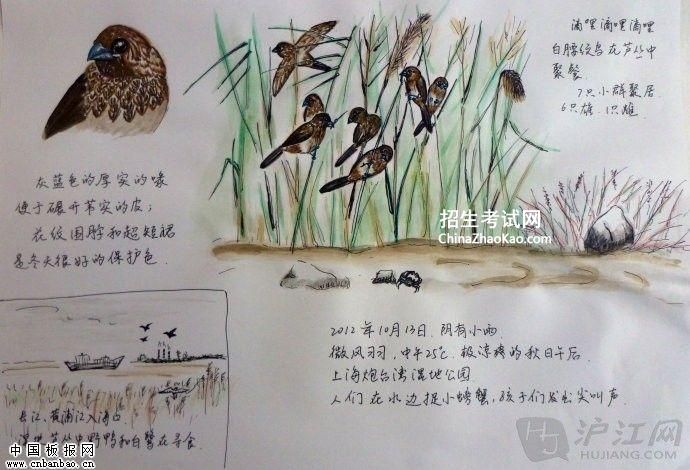 滴哩滴哩滴哩
白腰纹鸟在芦丛中
聚餐
7只小群聚居.
6只雄.1只雌.
灰蓝色的厚实的喙
便于碾开草实的皮；
花纹围脖和超短裙
是冬天很好的保护色.
招生考试网
ChinaZhaoKao.com
2012年10月13日.阴有小雨
微风习习,中午25℃.极凉爽的秋日午后.
上海炮台湾湿地公园.
人们在水边捉小螃蟹,孩子们发出尖叫声
长江、黄浦江入海口
丛中野鸭和白鹭在寻食.
中国板报网
www.cnbanbao.cn
HJ
沪江网
HUJIANG.COM